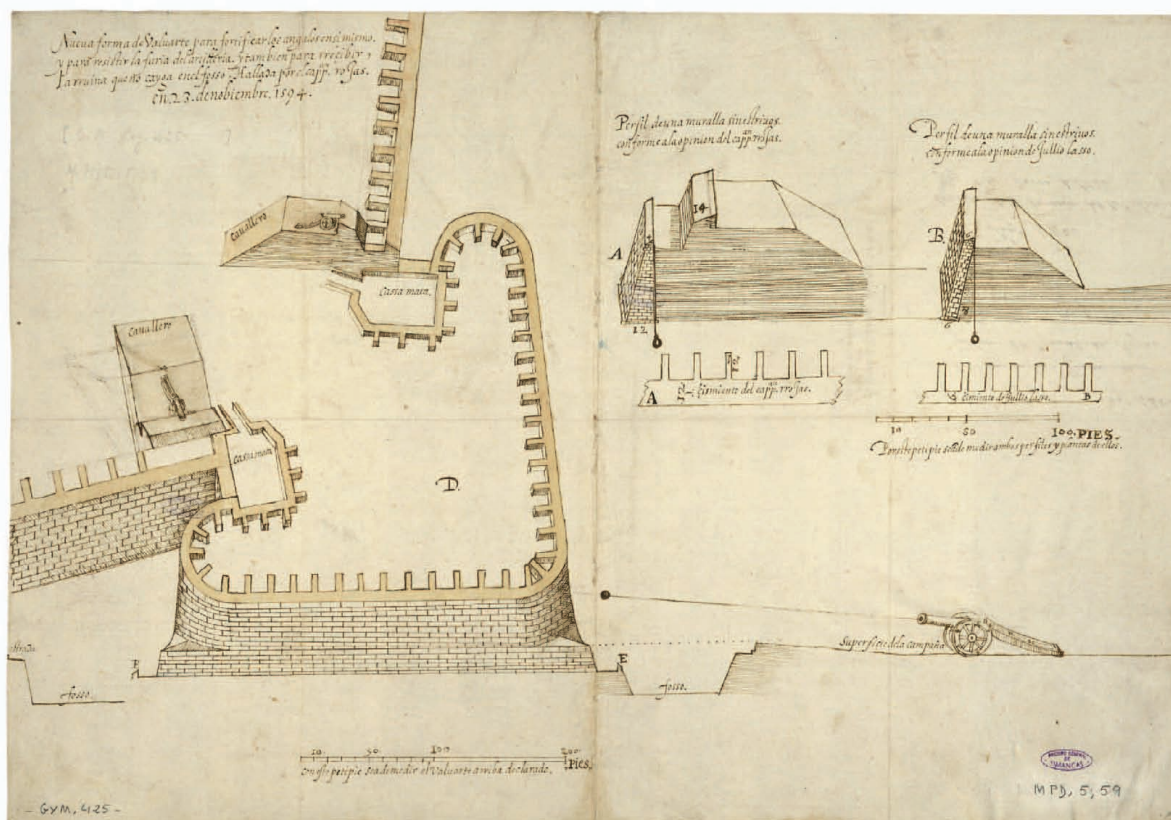 Nueva forma de Valuarte para fortificar los angulos rensimismo.
y para resistir la furia del artilleria. y tambien para rrecibir,
la rruina que no cayga en el fosso Hallada por el capp. rojas.
en. 23. de nobiembre. 1594.
Perfil de una muralla sin estrivos.
conforme a la opinion del capp. rrojas.
Perfil de una muralla sin estrivos.
conforme a la opinion de Jullio lasso.
cavallero
14
A
12
B.
6
Casamata.
cavallero
Casamata
A
Cimiento del capp. rrojas.
Cimiento de Jullio lasso.
B
10
50
100. PIES.
Por este petipie se a de medir ambos perfiles y plantas de ellos.
D.
Superficie de la campaña
E
fosso.
fosso.
10.
50.
100
200
Pies.
con este petipie se a de medir el Valuarte arriba declarado.
ARCHIVO GENERAL
DE
SIMANCAS
MPD, 5, 59
- GYM, 425 -